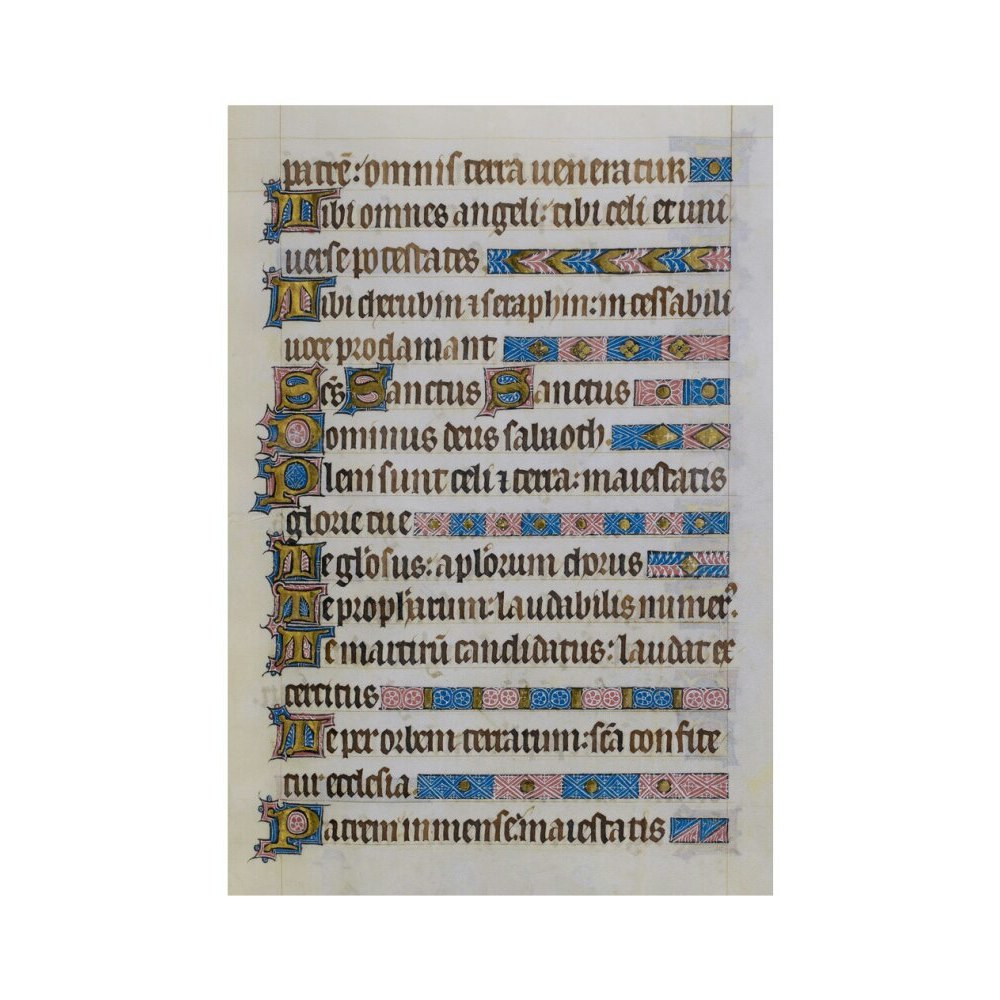 patrē: omnis terra ueneratur
Tibi omnes angeli: tibi celi et uni
uerse potestates
Tibi cherubin ⁊ seraphin: incessabili
uoce proclamant
Sc̄s Sanctus Sanctus
Dominus deus sabaoth.
Pleni sunt celi ⁊ terra: maiestatis
glorie tue
Te gl̄osus: apl̄orum chorus
Te proph̄arum: laudabilis numer᾿.
Te martirū candidatus: laudat ex
ercitus
Te per orbem terrarum: sc̄a confite
tur ecclesia.
Patrem inmense maiestatis